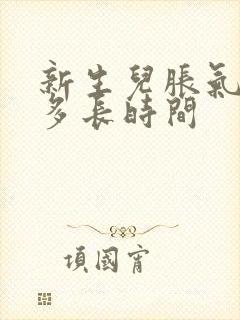 新生兒脹氣
多長時間
項國宵